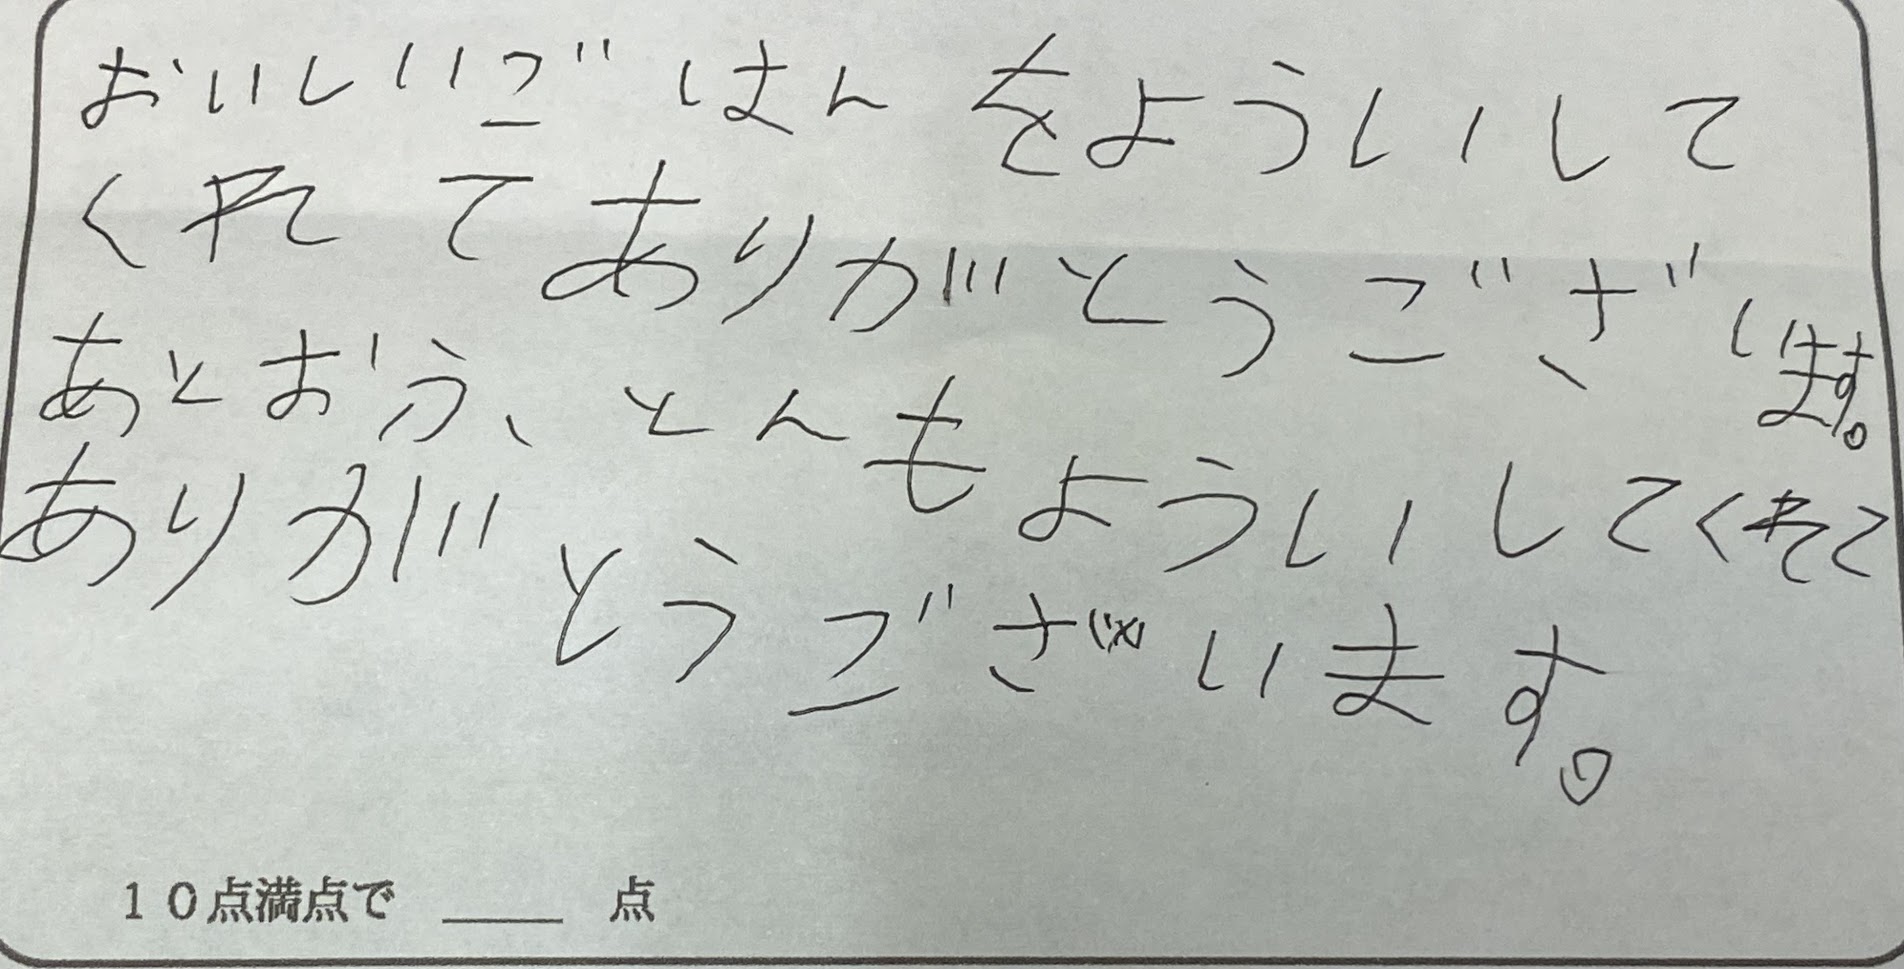 おいしいごはんをよういして
くれてありがとうございます。
あとおふとんもよういしてくれて
ありがとうございます。
10点満点で ____ 点